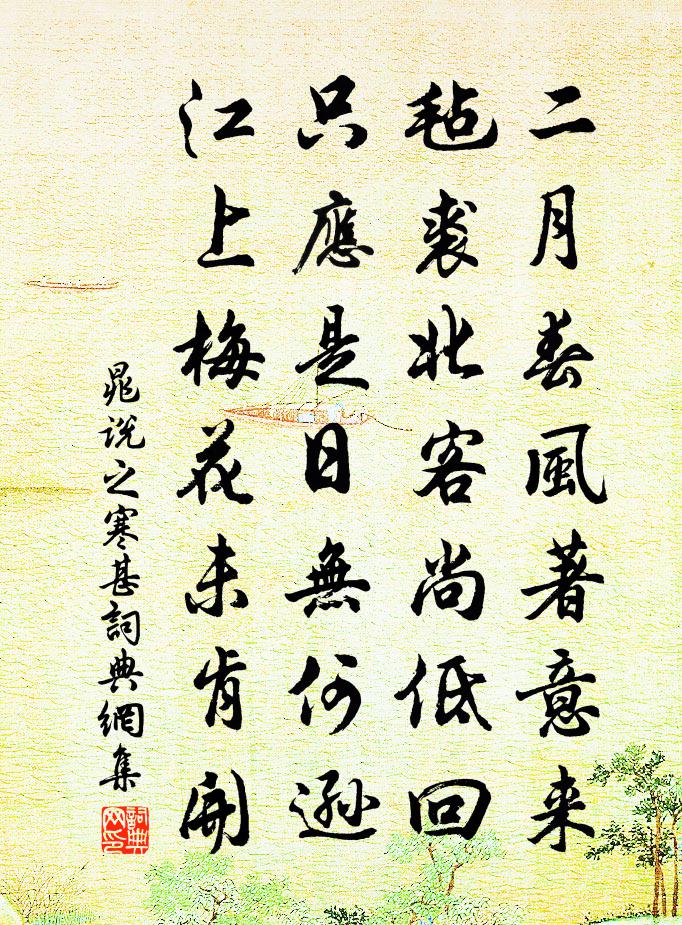 二月春風著意来
毡裘北客尚低回
只應是日無何遜
江上梅花未肯開
晁说之寒甚詞典網集
詞典网印